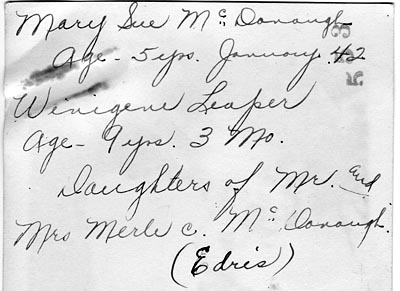 Mary Sue McDonough
Age - 5 yrs. January 42
Winigene Leaper
Age - 9 yrs. 3 Mo.
Daughters of Mr. and
Mrs Merle C. McDonough.
(Edris)